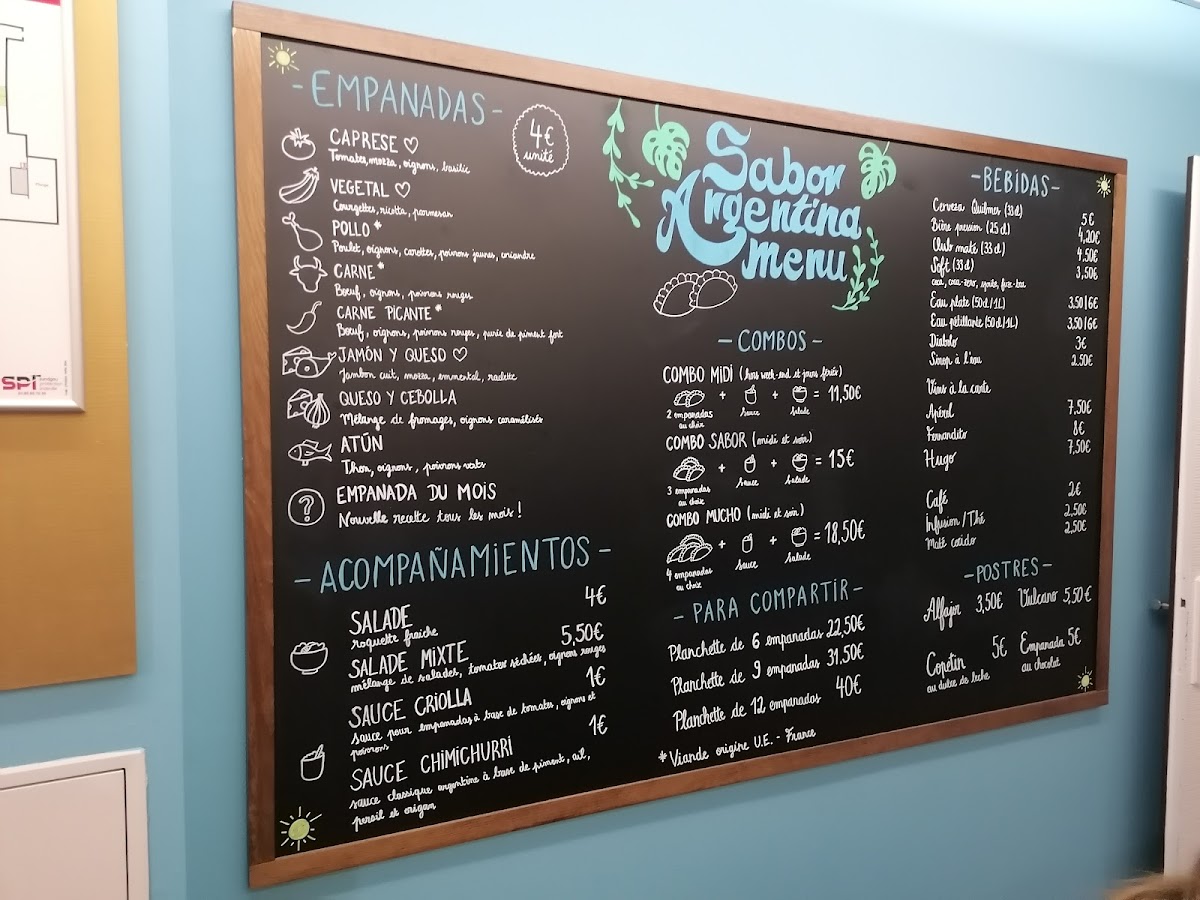 - EMPANADAS -
4€
unité
CAPRESE ♡
Tomates, mozza, oignons, basilic
VEGETAL ♡
Courgettes, ricotta, parmesan
POLLO *
Poulet, oignons, carottes, poivrons jaunes, coriandre
CARNE *
Boeuf, oignons, poivrons rouges
CARNE PICANTE *
Boeuf, oignons, poivrons rouges, purée de piment fort
JAMÓN Y QUESO ♡
Jambon cuit, mozza, emmental, raclette
QUESO Y CEBOLLA
Mélange de fromages, oignons caramélisés
ATÚN
Thon, oignons, poivrons verts
?
EMPANADA DU MOIS
Nouvelle recette tous les mois !
- ACOMPAÑAMIENTOS -
SALADE 4€
roquette fraiche
SALADE MIXTE 5,50€
mélange de salades, tomates séchées, oignons rouges
SAUCE CRIOLLA 1€
sauce pour empanadas à base de tomates, oignons et
poivrons
SAUCE CHIMICHURRI 1€
sauce classique argentine à base de piment, ail,
persil et origan
Sabor
Argentina
menu
- COMBOS -
COMBO MIDI (hors week-end et jours fériés)
+ + = 11,50€
2 empanadas sauce salade
au choix
COMBO SABOR (midi et soir)
+ + = 15€
3 empanadas sauce salade
au choix
COMBO MUCHO (midi et soir)
+ + = 18,50€
4 empanadas sauce salade
au choix
- PARA COMPARTIR -
Planchette de 6 empanadas 22,50€
Planchette de 9 empanadas 31,50€
Planchette de 12 empanadas 40€
* Viande origine U.E. - France
- BEBIDAS -
Cerveza Quilmes (33cl) 5€
Bière pression (25 cl) 4,20€
Club maté (33 cl) 4,50€
Soft (33 cl) 3,50€
coca, coca-zero, sprite, fuze-tea
Eau plate (50cl/1L) 3.50|6€
Eau pétillante (50 cl/1L) 3.50|6€
Diabolo 3€
Sirop à l'eau 2.50€
Vins à la carte
Apérol 7,50€
Fernandito 8€
Hugo 7,50€
Café 2€
Infusion/Thé 2,50€
Maté cocido 2,50€
- POSTRES -
Alfajor 3,50€ Vulcano 5,50€
Copetin 5€ Empanada 5€
au dulce de leche au chocolat
SPI